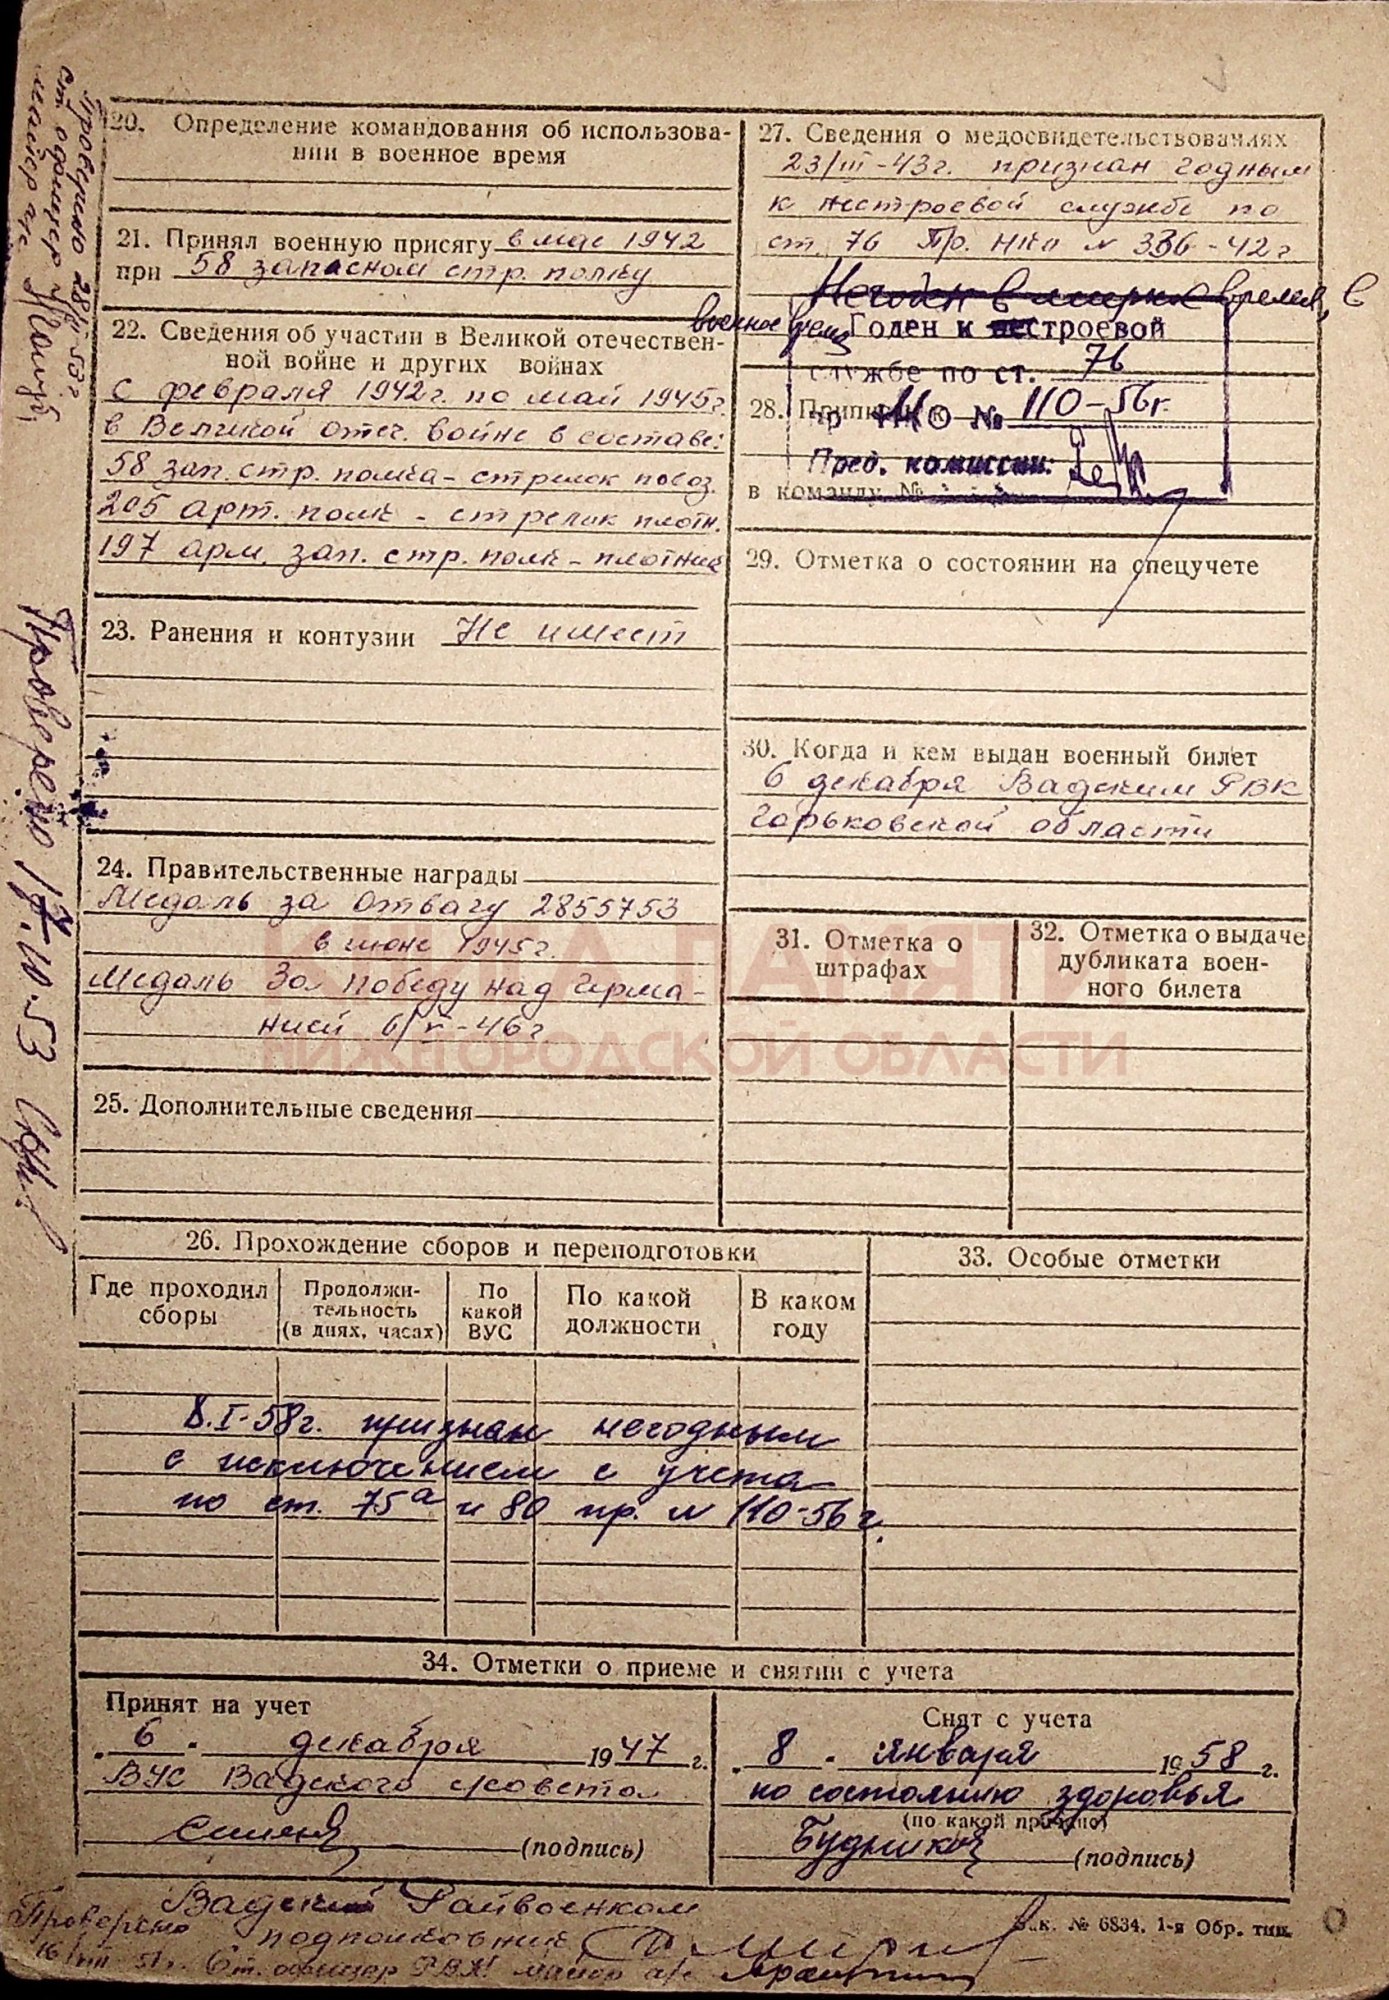 20. Определение командования об использова-
нии в военное время
21. Принял военную присягу в мае 1942
при 58 запасном стр. полку
22. Сведения об участии в Великой отечествен-
ной войне и других войнах
С февраля 1942г. по май 1945г.
в Великой отеч. войне в составе:
58 зап. стр. полка - стрелок
205 арт. полк - стрелок плотн.
197 арм. зап. стр. полк - плотник
23. Ранения и контузии Не имеет
24. Правительственные награды
Медаль за отвагу 2855753
в июне 1945г.
Медаль За победу над Герма-
нией 6/V-46г
25. Дополнительные сведения
27. Сведения о медосвидетельствованиях
23/III-43г. признан годным
к нестроевой службе по
ст. 76 Пр. НКО N 336-42г
Негоден в мирное время, в
военное время Годен к нестроевой
службе по ст. 76
пр № 110-56г.
Пред. комиссии:
28. Приписан к
в команду №
29. Отметка о состоянии на спецучете
30. Когда и кем выдан военный билет
6 декабря Вадским РВК
Горьковской области
31. Отметка о
штрафах
32. Отметка о выдаче
дубликата воен-
ного билета
КНИГА ПАМЯТИ
НИЖЕГОРОДСКОЙ ОБЛАСТИ
26. Прохождение сборов и переподготовки
Где проходил
сборы
Продолжи-
тельность
(в днях, часах)
По
какой
ВУС
По какой
должности
В каком
году
8.I-58г. признан негодным
с исключением с учета
по ст. 75а и 80 пр. N 110-56г.
33. Особые отметки
34. Отметки о приеме и снятии с учета
Принят на учет
"6" декабря 1947 г.
ВУС Вадского с/совета
(подпись)
Снят с учета
"8" января 1958 г.
по состоянию здоровья
(по какой причине)
Будников
(подпись)
Вадский Райвоенком
подполковник
Проверено
16/VIII 51г. Ст. офицер РВК майор а/с
Зак. № 6834. 1-я Обр. тип.
Проверено 28/II-53г
ст офицер
майор
Проверено 17.10.53